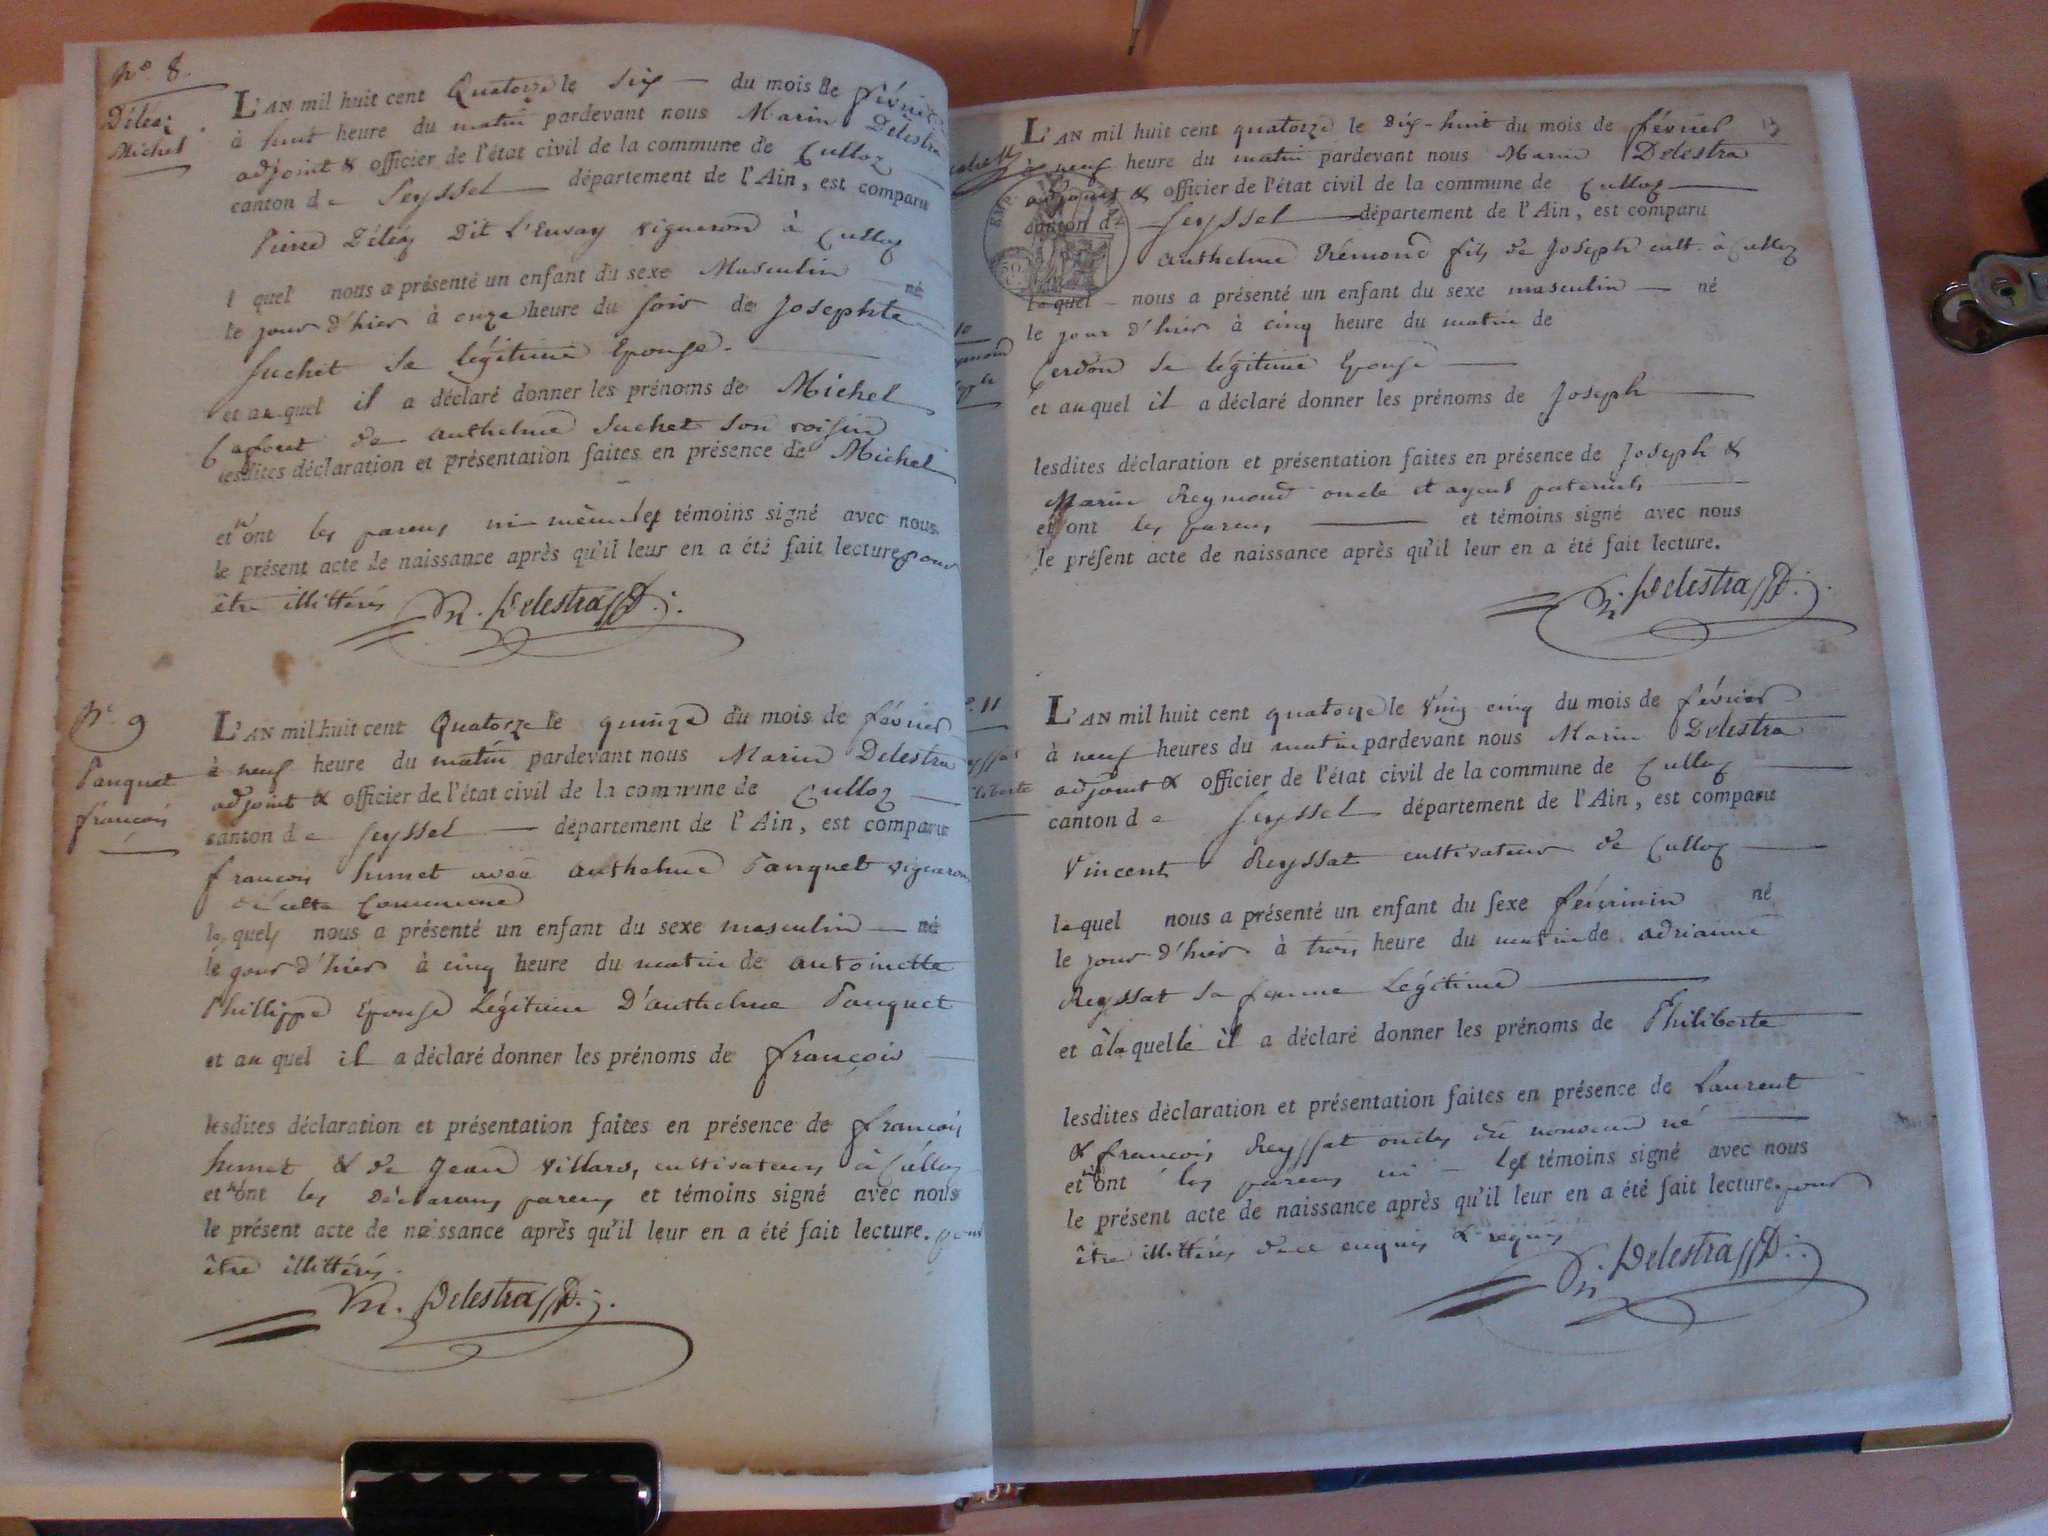 N.º 8.
Déléaz
Michel
L'AN mil huit cent Quatorze le six du mois de février
à huit heure du matin pardevant nous Marin Delestra
adjoint & officier de l'état civil de la commune de Culloz
canton de Seyssel département de l'Ain, est comparu
Pierre Déléaz Dit L'Envay vigneron à Culloz
l quel nous a présenté un enfant du sexe Masculin né
le jour d'hier à onze heure du soir de Josephte
Suchet sa légitime Epouse.
et au quel il a déclaré donner les prénoms de Michel
lesdites déclaration et présentation faites en présence de Michel
de anthelme Suchet son voisin
et n'ont les parens ni même les témoins signé avec nous
le présent acte de naissance après qu'il leur en a été fait lecture pour
être illittérés
M. Delestra
N.º 9
Panquet
françois
L'AN mil huit cent Quatorze le quinze du mois de février
à neuf heure du matin pardevant nous Marin Delestra
adjoint & officier de l'état civil de la commune de Culloz
canton de Seyssel département de l'Ain, est comparu
françois humet avec anthelme Panquet vigneron
de cette Commune
lesquels nous a présenté un enfant du sexe masculin né
le jour d'hier à cinq heure du matin de antoinette
Phillippe Epouse Légitime D'anthelme Panquet
et au quel il a déclaré donner les prénoms de françois
lesdites déclaration et présentation faites en présence de françois
humet & de Jean Villars, cultivateurs à Culloz
et n'ont les Déclarans parens et témoins signé avec nous
le présent acte de naissance après qu'il leur en a été fait lecture. pour
être illittérés.
M. Delestra
13
L'AN mil huit cent quatorze le Dix-huit du mois de février
à neuf heure du matin pardevant nous Marin Delestra
adjoint & officier de l'état civil de la commune de Culloz
canton de Seyssel département de l'Ain, est comparu
anthelme Rémond fils de Joseph cult. à Culloz
lequel nous a présenté un enfant du sexe masculin né
le jour d'hier à cinq heure du matin de
Cerdon sa légitime Epouse
et auquel il a déclaré donner les prénoms de Joseph
lesdites déclaration et présentation faites en présence de Joseph &
Marin Reymond oncle et ayeul paternels
et ont les parens et témoins signé avec nous
le présent acte de naissance après qu'il leur en a été fait lecture.
M. Delestra
11
L'AN mil huit cent quatorze le Vingt cinq du mois de février
à neuf heures du matin pardevant nous Marin Delestra
adjoint & officier de l'état civil de la commune de Culloz
canton de Seyssel département de l'Ain, est comparu
Vincent Reyssat cultivateur de Culloz
lequel nous a présenté un enfant du sexe féminin né
le jour d'hier à trois heure du matin de adrianne
Reyssat sa femme Légitime
et à laquelle il a déclaré donner les prénoms de Philiberte
lesdites déclaration et présentation faites en présence de Laurent
& françois Reyssat oncles du nouveau né
et n'ont les parens ni les témoins signé avec nous
le présent acte de naissance après qu'il leur en a été fait lecture. pour
être illittérés de ce enquis & requis
M. Delestra